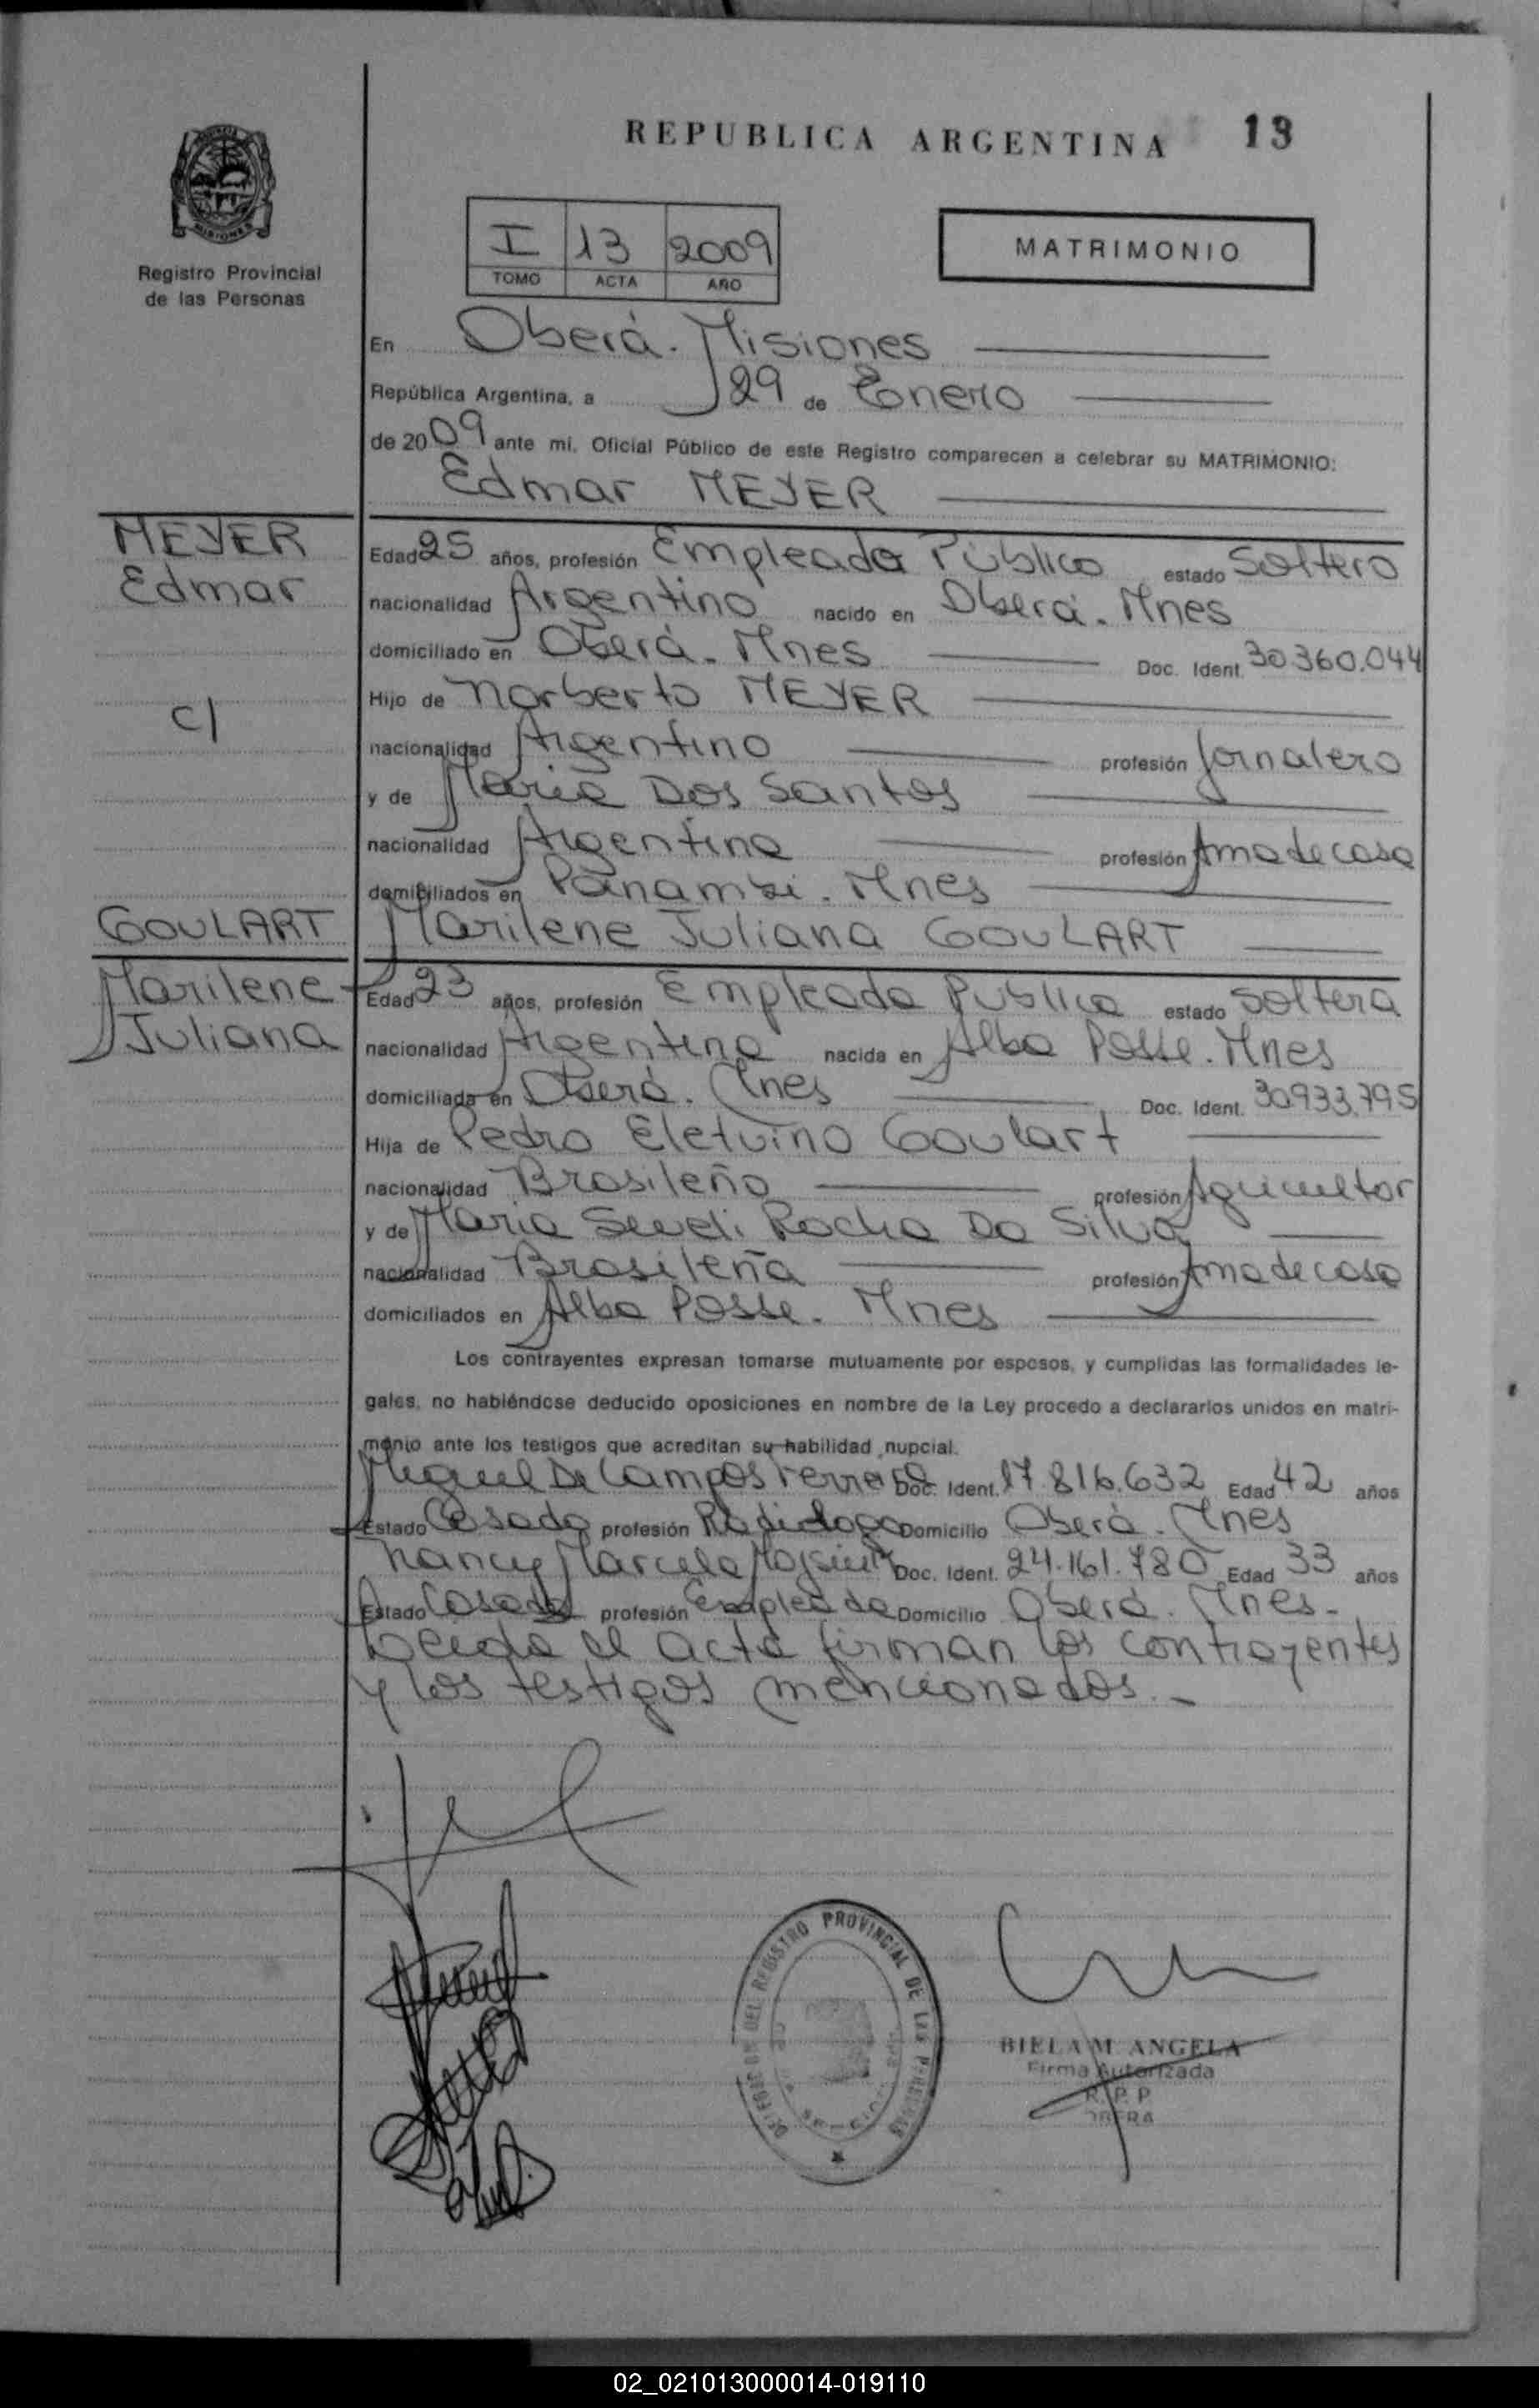 REPUBLICA ARGENTINA 13
MISIONES
Registro Provincial
de las Personas
I 13 2009
TOMO ACTA AÑO
MATRIMONIO
En Oberá. Misiones
República Argentina, a 29 de Enero
de 2009 ante mi, Oficial Público de este Registro comparecen a celebrar su MATRIMONIO:
Edmar MEYER
MEYER
Edmar
c/
Edad 25 años, profesión Empleado Público estado Soltero
nacionalidad Argentino nacido en Oberá. Mnes
domiciliado en Oberá. Mnes Doc. Ident. 30.360.044
Hijo de Norberto MEYER
nacionalidad Argentino profesión Jornalero
y de Maria Dos Santos
nacionalidad Argentina profesión Ama de casa
domiciliados en Panambi. Mnes
GOULART
Marilene
Juliana
Marilene Juliana GOULART
Edad 23 años, profesión Empleada Publica estado Soltera
nacionalidad Argentina nacida en Alba Posse. Mnes
domiciliada en Oberá. Mnes Doc. Ident. 30.933.795
Hija de Pedro Eletvino Goulart
nacionalidad Brasileño profesión Agricultor
y de Maria Sueli Rocha Da Silva
nacionalidad Brasileña profesión Ama de casa
domiciliados en Alba Posse. Mnes
Los contrayentes expresan tomarse mutuamente por esposos, y cumplidas las formalidades le-
gales, no habiéndose deducido oposiciones en nombre de la Ley procedo a declararlos unidos en matri-
monio ante los testigos que acreditan su habilidad nupcial.
Miguel De Campos Doc. Ident. 17.816.632 Edad 42 años
Estado Casado profesión Radiologo Domicilio Oberá. Mnes
Nancy Marcela Doc. Ident. 24.161.780 Edad 33 años
Estado Casada profesión Empleada Domicilio Oberá. Mnes.
Leida el acta firman los contrayentes
y los testigos mencionados.
DELEGACION DEL REGISTRO PROVINCIAL DE LAS PERSONAS
BIELA M. ANGELA
Firma Autorizada
R. P. P
OBERA
02_021013000014-019110